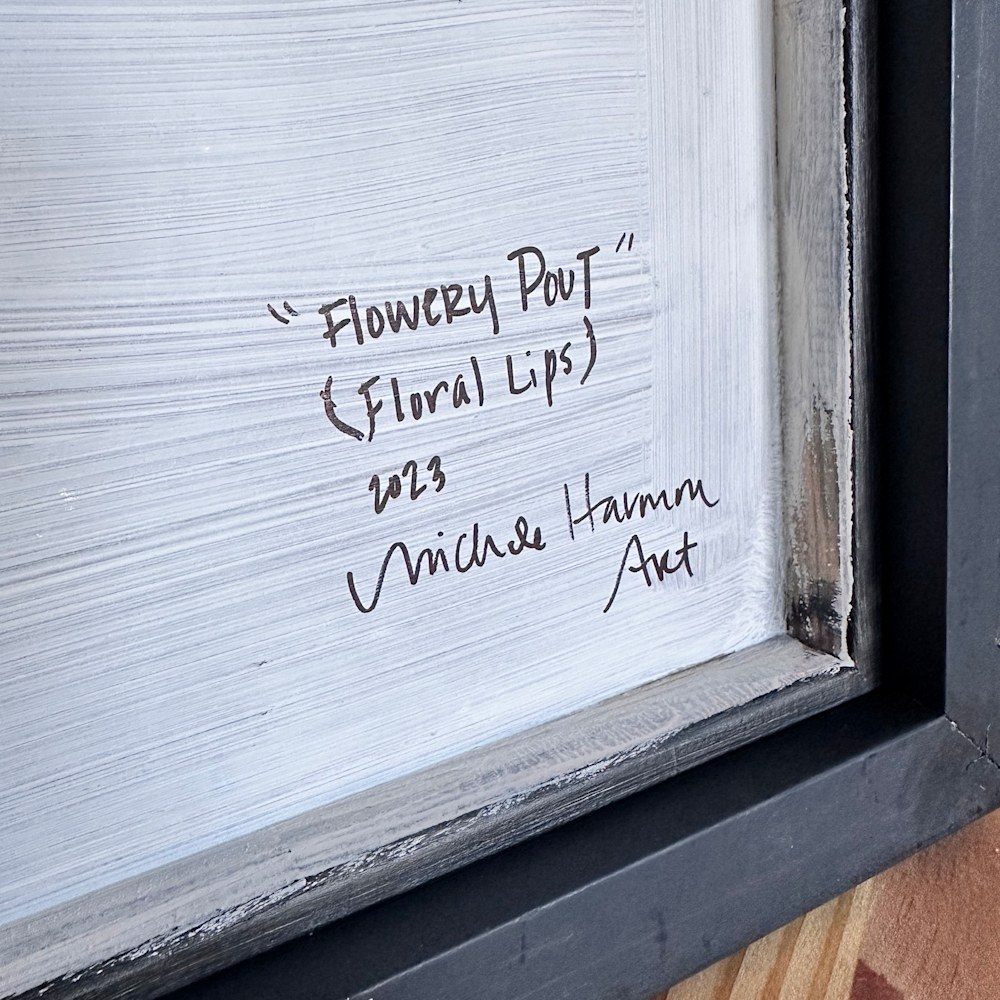 "Flowery Pout"
(Floral Lips)
2023
Michele Harmon
Art